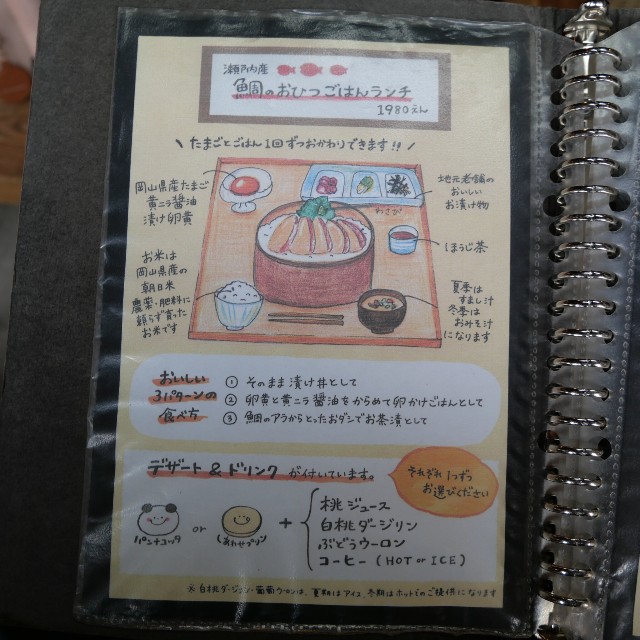 瀬戸内産
鯛のおひつごはんランチ
1980えん
\ たまごとごはん1回ずつおかわりできます!! /
岡山県産たまご
黄ニラ醤油
漬け卵黄
地元老舗の
おいしい
お漬け物
わさび
ほうじ茶
お米は
岡山県産の
朝日米
農薬・肥料に
頼らず育った
お米です
夏季は
すまし汁
冬季は
おみそ汁
になります
おいしい
3パターンの
食べ方
① そのまま漬け丼として
② 卵黄と黄ニラ醤油をからめて卵かけごはんとして
③ 鯛のアラからとったおダシでお茶漬として
デザート & ドリンク が付いています。
それぞれ1つずつ
お選びください
パンナコッタ
or
しあわせプリン
+
桃ジュース
白桃ダージリン
ぶどうウーロン
コーヒー (HOT or ICE)
※白桃ダージリン・葡萄ウーロンは、夏期はアイス、冬期はホットでのご提供になります